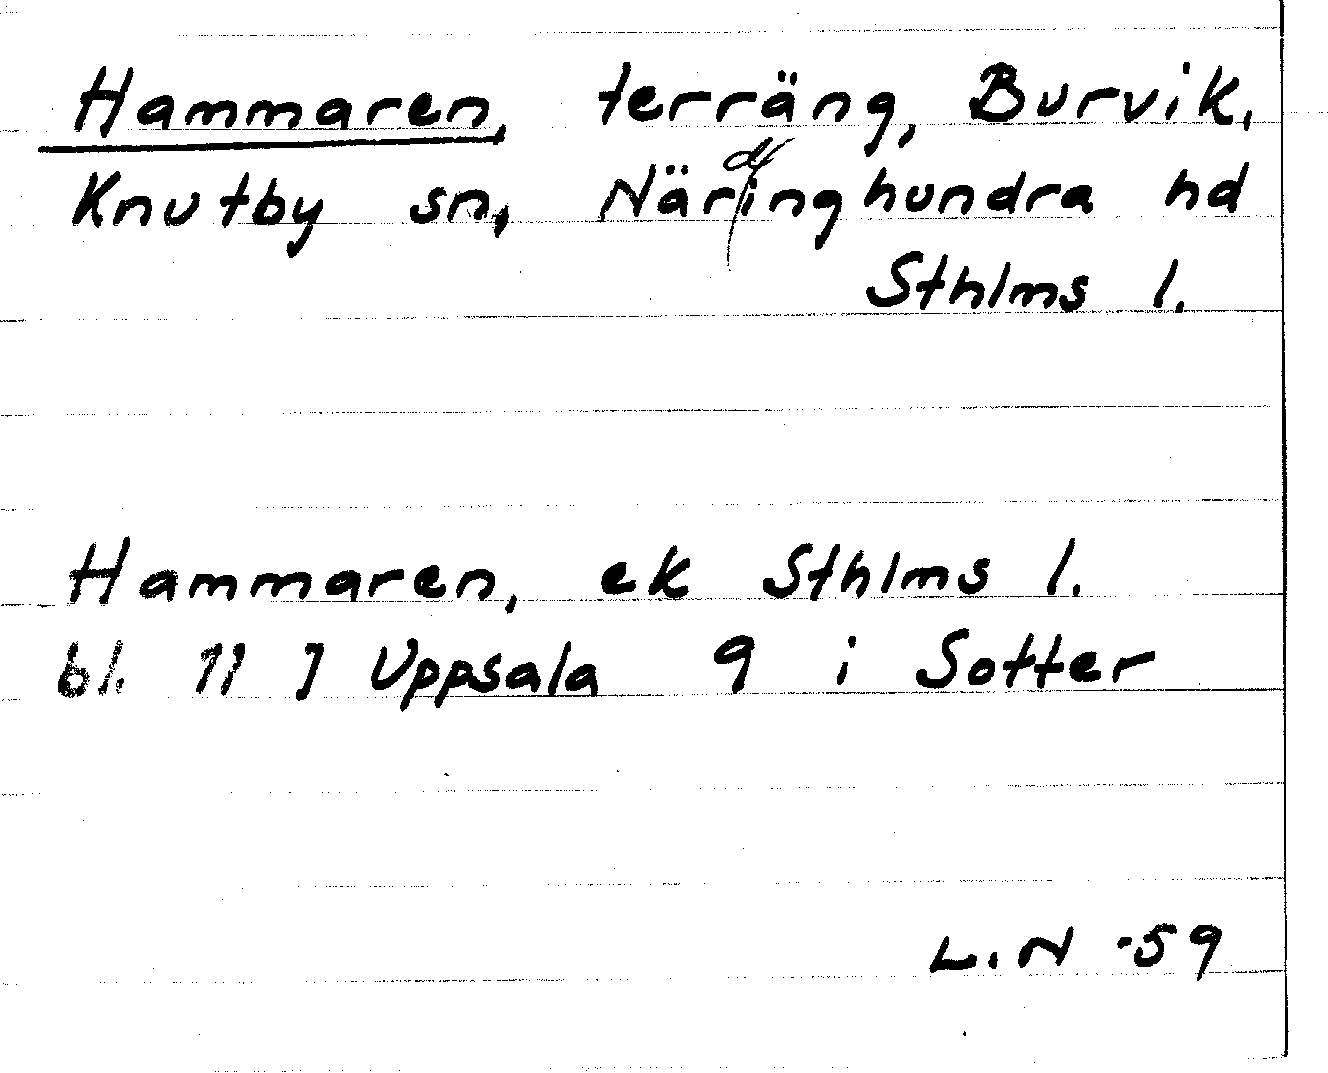 Hammaren, terräng, Burvik,
Knutby sn, Närdinghundra hd
Sthlms l.
Hammaren, ek Sthlms l.
bl. 11 J Uppsala 9 i Sotter
L.N -59